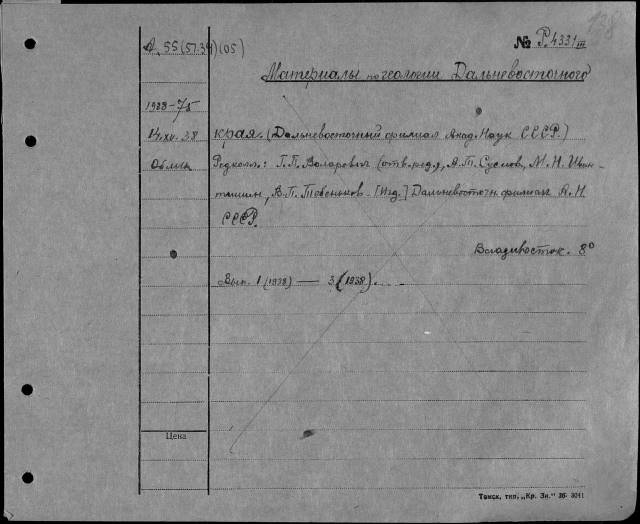 138
А 55(57.34)(05)
№ Р.4331 III
Материалы по геологии Дальневосточного
1938-75
14.XII.38 края. (Дальневосточный филиал Акад. Наук СССР.)
Редкол.: Г.П. Воларович (отв. ред), А.Т. Суслов, М.И.
В.П. Тебеньков. [Изд.] Дальневосточн. филиал А.Н.
СССР.
Владивосток. 8°
Вып. 1 (1938) — 3 (1938).
Цена
Томск, тип. „Кр. Зн." 36 3041